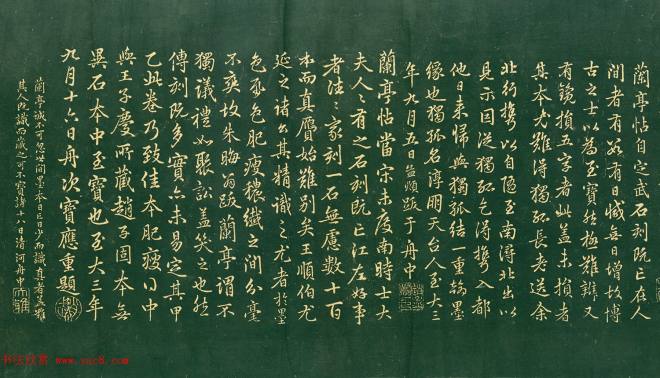 蘭亭帖自定武石刻既亡在人
間者有數有日減無日增故博
古之士以為至寶然極難辨又
有鑱損五字者此蓋未損者
其本尤難得獨孤長老送余
北行攜以自隨至南潯北出以
見示因從獨孤乞得攜入都
他日來歸與獨孤結一重翰墨
緣也獨孤名淳朋天台人至大三
年九月五日孟頫跋于舟中
蘭亭帖當宋未度南時士大
夫人人有之石刻既亡江左好事
者往往家刻一石無慮數十百
本而真贗始難別矣王順伯尤
延之諸公其精識之尤者於墨
色紙色肥瘦穠纖之間分毫
不爽故朱晦翁跋蘭亭謂不
獨議禮如聚訟蓋笑之也然
傳刻既多實亦未易定其甲
乙此卷乃致佳本肥瘦得中
與王子慶所藏趙子固本無
異石本中至寶也至大三年
九月十六日舟次寶應重題
蘭亭誠不可忽世間墨本日亡日少而識真者蓋難
其人既識而藏之可不寶諸十八日清河舟中
书法欣赏 www.yac8.com